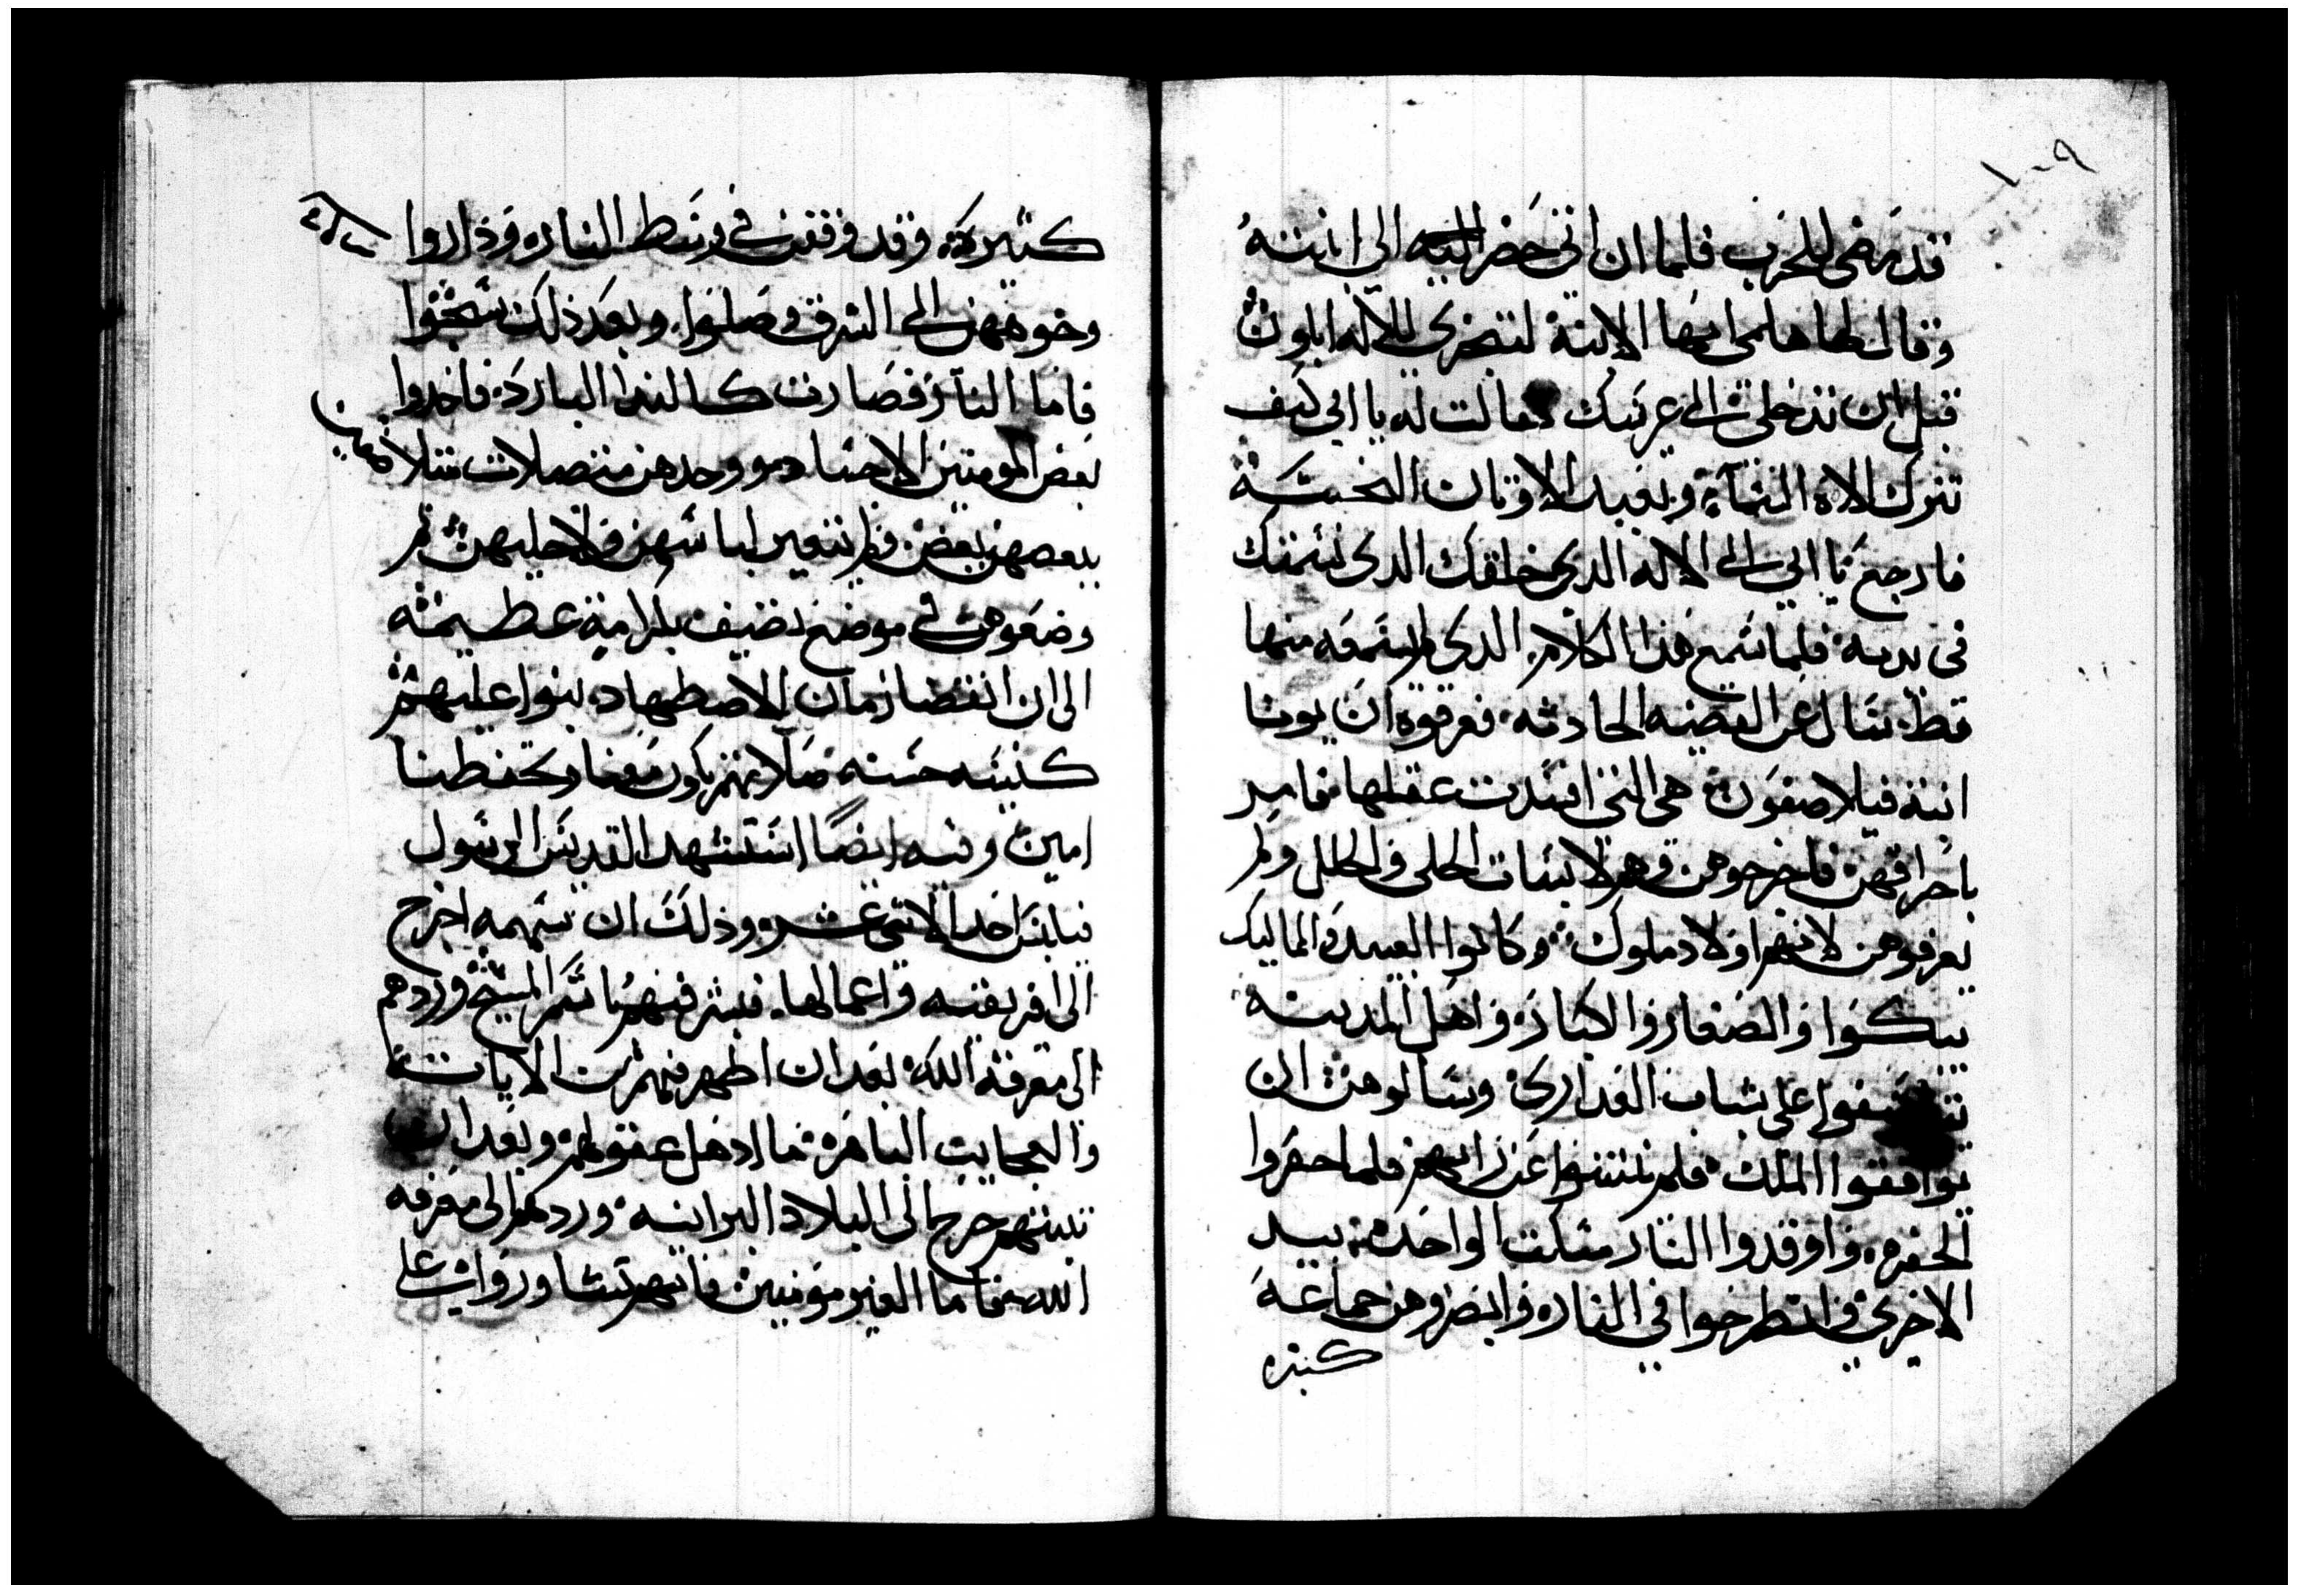 ١٠٩
قد مضى للحرب فلما ان اتى حضر اليه الي ابنته
وقال لها هلمى ايها الابنة لتبخرى للاله ابلون
قبل ان تدخلى الى عريسك فقالت له يا ابي كيف
تترك الاه السماء وتعبد الاوثان النجسة
فارجع يا ابي الى الاله الدى خلقك الدى نسمتك
فى يديه فلما سمع هذا الكلام الدى لم يسمعه منها
قط سال عن القضيه الحادثه فعرفوه ان يونا
ابنة فيلاصفون هى التى افسدت عقلها فامر
باحراقهن فاخرجوهن وهم لابسات الحلى والحلل ولم
يعرفوهن لانهم اولاد ملوك وكانوا العبيد والماليك
يبكوا والصغار والكبار واهل المدينة
على شباب العدارى وسالوهن ان
يوافقوا الملك فلم ينتنوا عن رايهم فلما حفروا
الحفره واوقدوا النار مسكت الواحده بيد
الاخرى وانطرحوا في النار وابصروهن جماعة
كتيره
كتيره وقد وقفن فى وسط النار وداروا
وجوههن الى الشرق وصلوا وبعد ذلك سجدوا
فاما النار فصارت كالندا البارد فاخدوا
بعض المومنين الاجساد ووجدهن متصلات
ببعضهن بعض ولم تتغير لباسهن ولا حليهن ثم
وضعوهن فى موضع نضيف بكرامة عظيمه
الى ان انقضا زمان الاضطهاد بنوا عليهم
كنيسه حسنه صلاتهم تكون معنا وتحفظنا
امين وفيه ايضا استشهد القديس الرسول
فيلبس احد الاتنى عشر وذلك ان سهمه اخرج
الى افريقيه واعمالها فبشر فيهم باسم المسيح وردهم
الى معرفة الله بعد ان اظهر فيهم من الايات
والعجايب الباهرة ما ادهل عقولهم وبعد ان
تبتهم خرج الى البلاد البرانيه وردهم الى معرفه
الله فاما الغير مومنين فانهم تشاوروا على